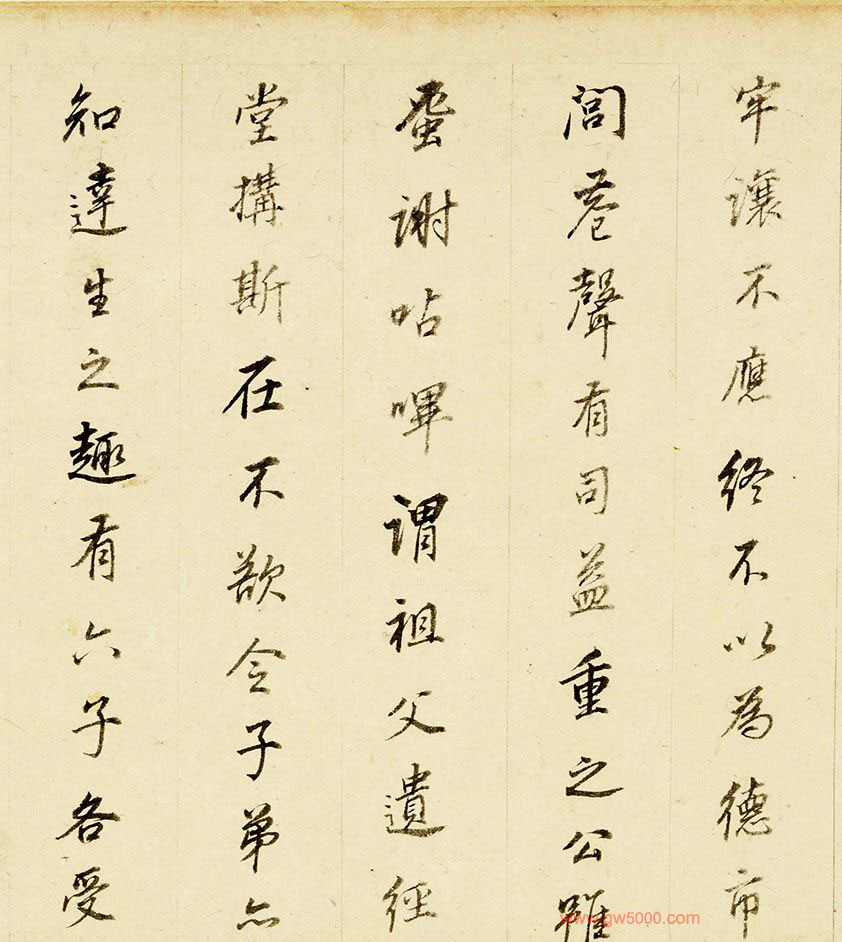 牢讓不應終不以為德市
閭巷聲有司益重之公雖
蚤謝呫嗶謂祖父遺經
堂搆斯在不欲令子弟亦
知達生之趣有六子各受
www.gw5000.com